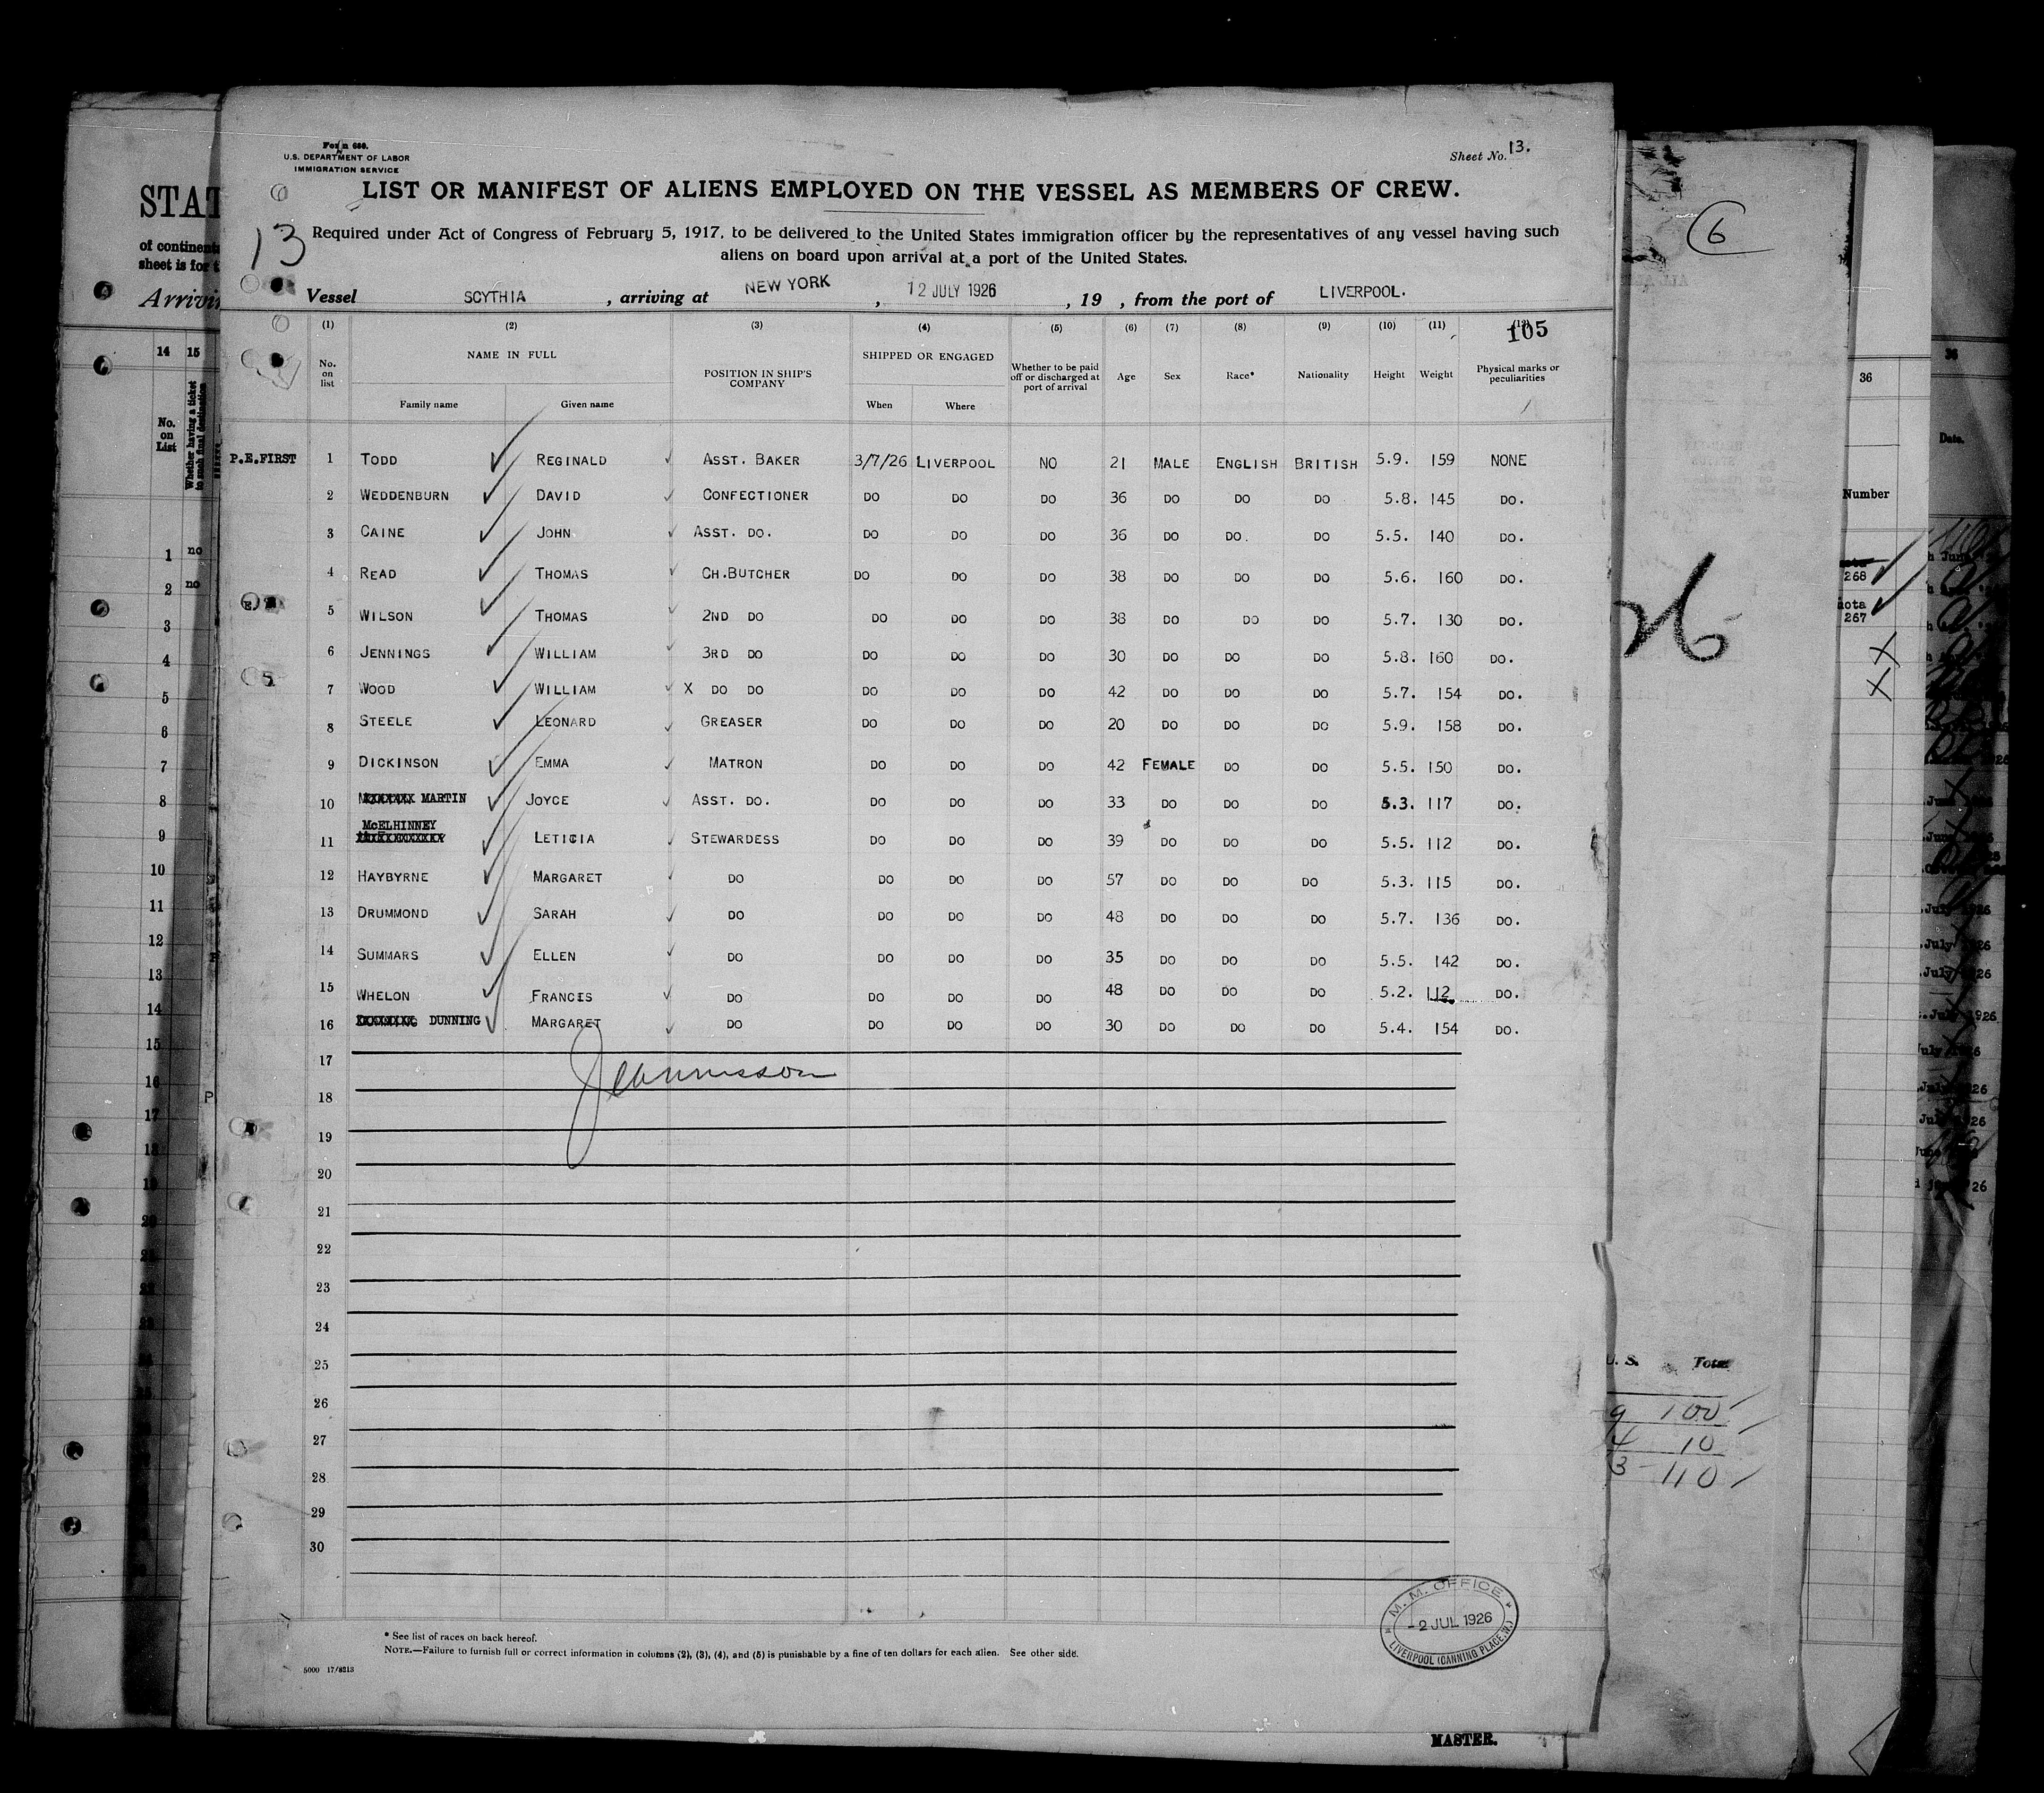 Form 680.
U.S. DEPARTMENT OF LABOR
IMMIGRATION SERVICE
Sheet No. 13.
LIST OR MANIFEST OF ALIENS EMPLOYED ON THE VESSEL AS MEMBERS OF CREW.
13
Required under Act of Congress of February 5, 1917, to be delivered to the United States immigration officer by the representatives of any vessel having such
aliens on board upon arrival at a port of the United States.
Vessel SCYTHIA , arriving at NEW YORK , 12 JULY 1926 , 19 , from the port of LIVERPOOL.
105
(1) (2) (3) (4) (5) (6) (7) (8) (9) (10) (11) (12)
No. on list NAME IN FULL POSITION IN SHIP'S COMPANY SHIPPED OR ENGAGED Whether to be paid off or discharged at port of arrival Age Sex Race* Nationality Height Weight Physical marks or peculiarities
Family name Given name When Where
P.E.FIRST 1 TODD REGINALD ASST. BAKER 3/7/26 LIVERPOOL NO 21 MALE ENGLISH BRITISH 5.9. 159 NONE
2 WEDDENBURN DAVID CONFECTIONER DO DO DO 36 DO DO DO 5.8. 145 DO.
3 CAINE JOHN ASST. DO. DO DO DO 36 DO DO. DO 5.5. 140 DO.
4 READ THOMAS CH.BUTCHER DO DO DO 38 DO DO DO 5.6. 160 DO.
5 WILSON THOMAS 2ND DO DO DO DO 38 DO DO DO 5.7. 130 DO.
6 JENNINGS WILLIAM 3RD DO DO DO DO 30 DO DO DO 5.8. 160 DO.
7 WOOD WILLIAM X DO DO DO DO DO 42 DO DO DO 5.7. 154 DO.
8 STEELE LEONARD GREASER DO DO DO 20 DO DO DO 5.9. 158 DO.
9 DICKINSON EMMA MATRON DO DO DO 42 FEMALE DO DO 5.5. 150 DO.
10 MARTIN JOYCE ASST. DO. DO DO DO 33 DO DO DO 5.3. 117 DO.
11 McELHINNEY LETICIA STEWARDESS DO DO DO 39 DO DO DO 5.5. 112 DO.
12 HAYBYRNE MARGARET DO DO DO DO 57 DO DO DO 5.3. 115 DO.
13 DRUMMOND SARAH DO DO DO DO 48 DO DO DO 5.7. 136 DO.
14 SUMMARS ELLEN DO DO DO DO 35 DO DO DO 5.5. 142 DO.
15 WHELON FRANCES DO DO DO DO 48 DO DO DO 5.2. 112 DO.
16 DUNNING MARGARET DO DO DO DO 30 DO DO DO 5.4. 154 DO.
17
18
19
20
21
22
23
24
25
26
27
28
29
30
M. M. OFFICE
-2 JUL 1926
LIVERPOOL (CANNING PLACE, W.)
* See list of races on back hereof.
NOTE.—Failure to furnish full or correct information in columns (2), (3), (4), and (5) is punishable by a fine of ten dollars for each alien. See other side.
5000 17/8213
MASTER.
STAT
of continent
sheet is for t
Arrivin
14 15
No. on List
Whether having a ticket to such final destination
1 no
2 no
3
4
5
6
7
8
9
10
11
12
13
14
15
16
17
18
19
20
6
26
U. S. Total
9 100
4 10
3 110
36
Number
268
267
36
Date.